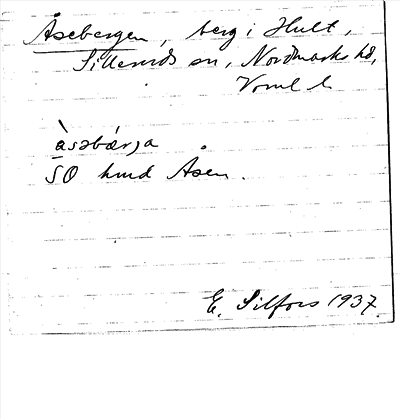 Åsebergen, berg i Hult,
Sillerud sn, Nordmarks hd,
Vrml l.
àsəbǽrja
SO hmd Åsen.
E. Silfors 1937.